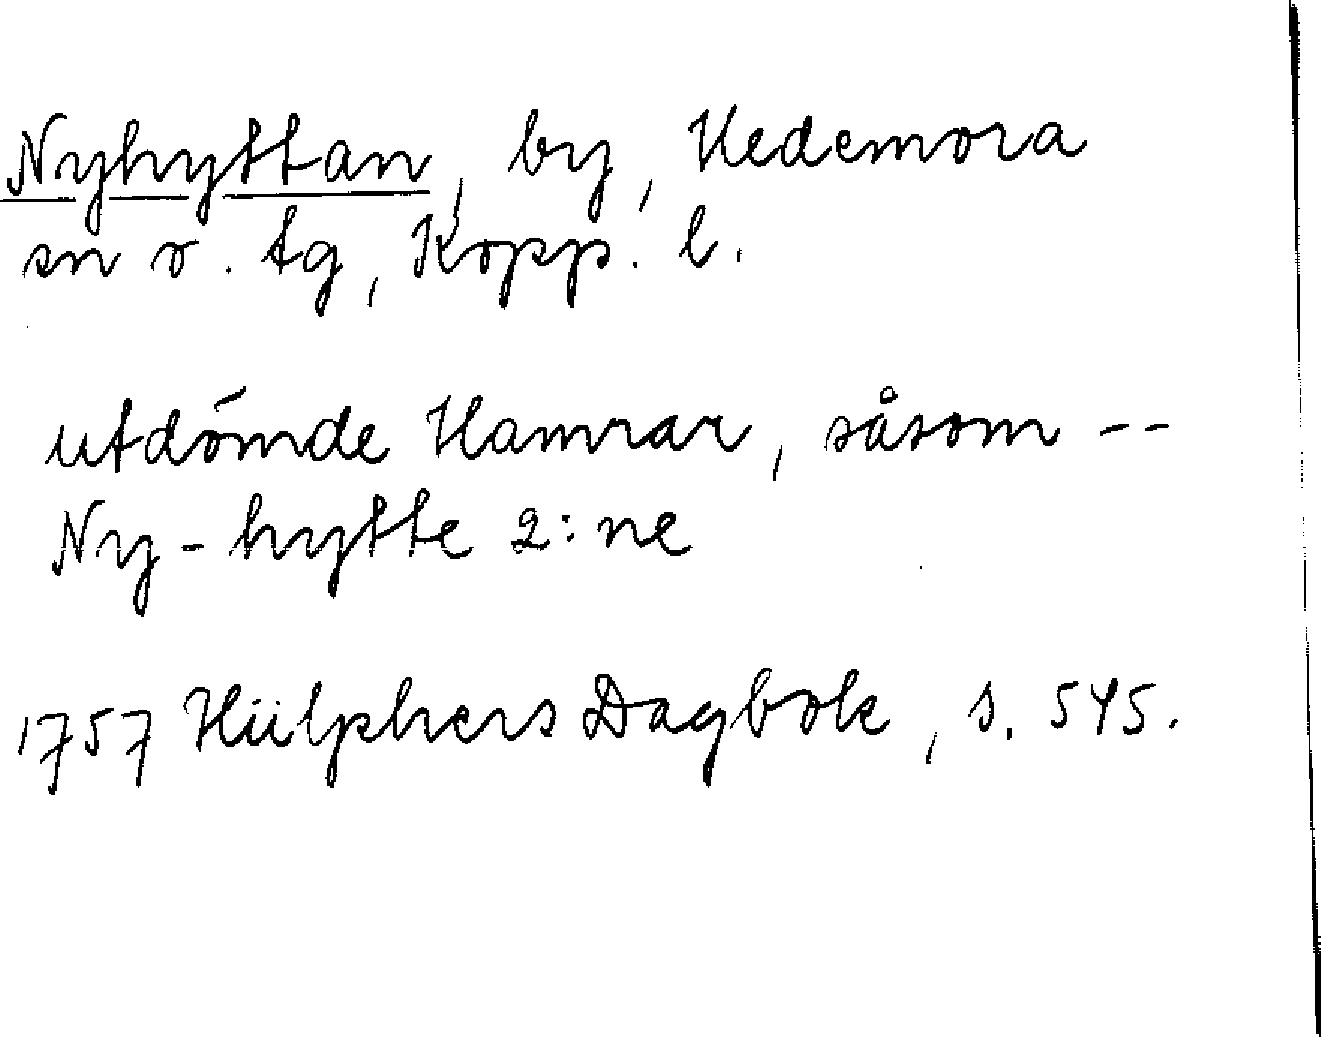 Nyhyttan, by, Hedemora
sn o. tg, Kopp. l.
utdömde Hamrar, såsom --
Ny-hytte 2:ne
1757 Hülphers Dagbok, s. 545.